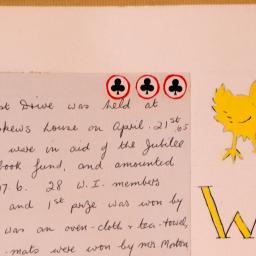 st Drive was held at
hews House on April. 21st '65
were in aid of the Jubilee
book fund, and amounted
7. 6. 28 W. I. members
and 1st prize was won by
was an oven-cloth & tea-towel,
mats were won by Mrs Morton
W